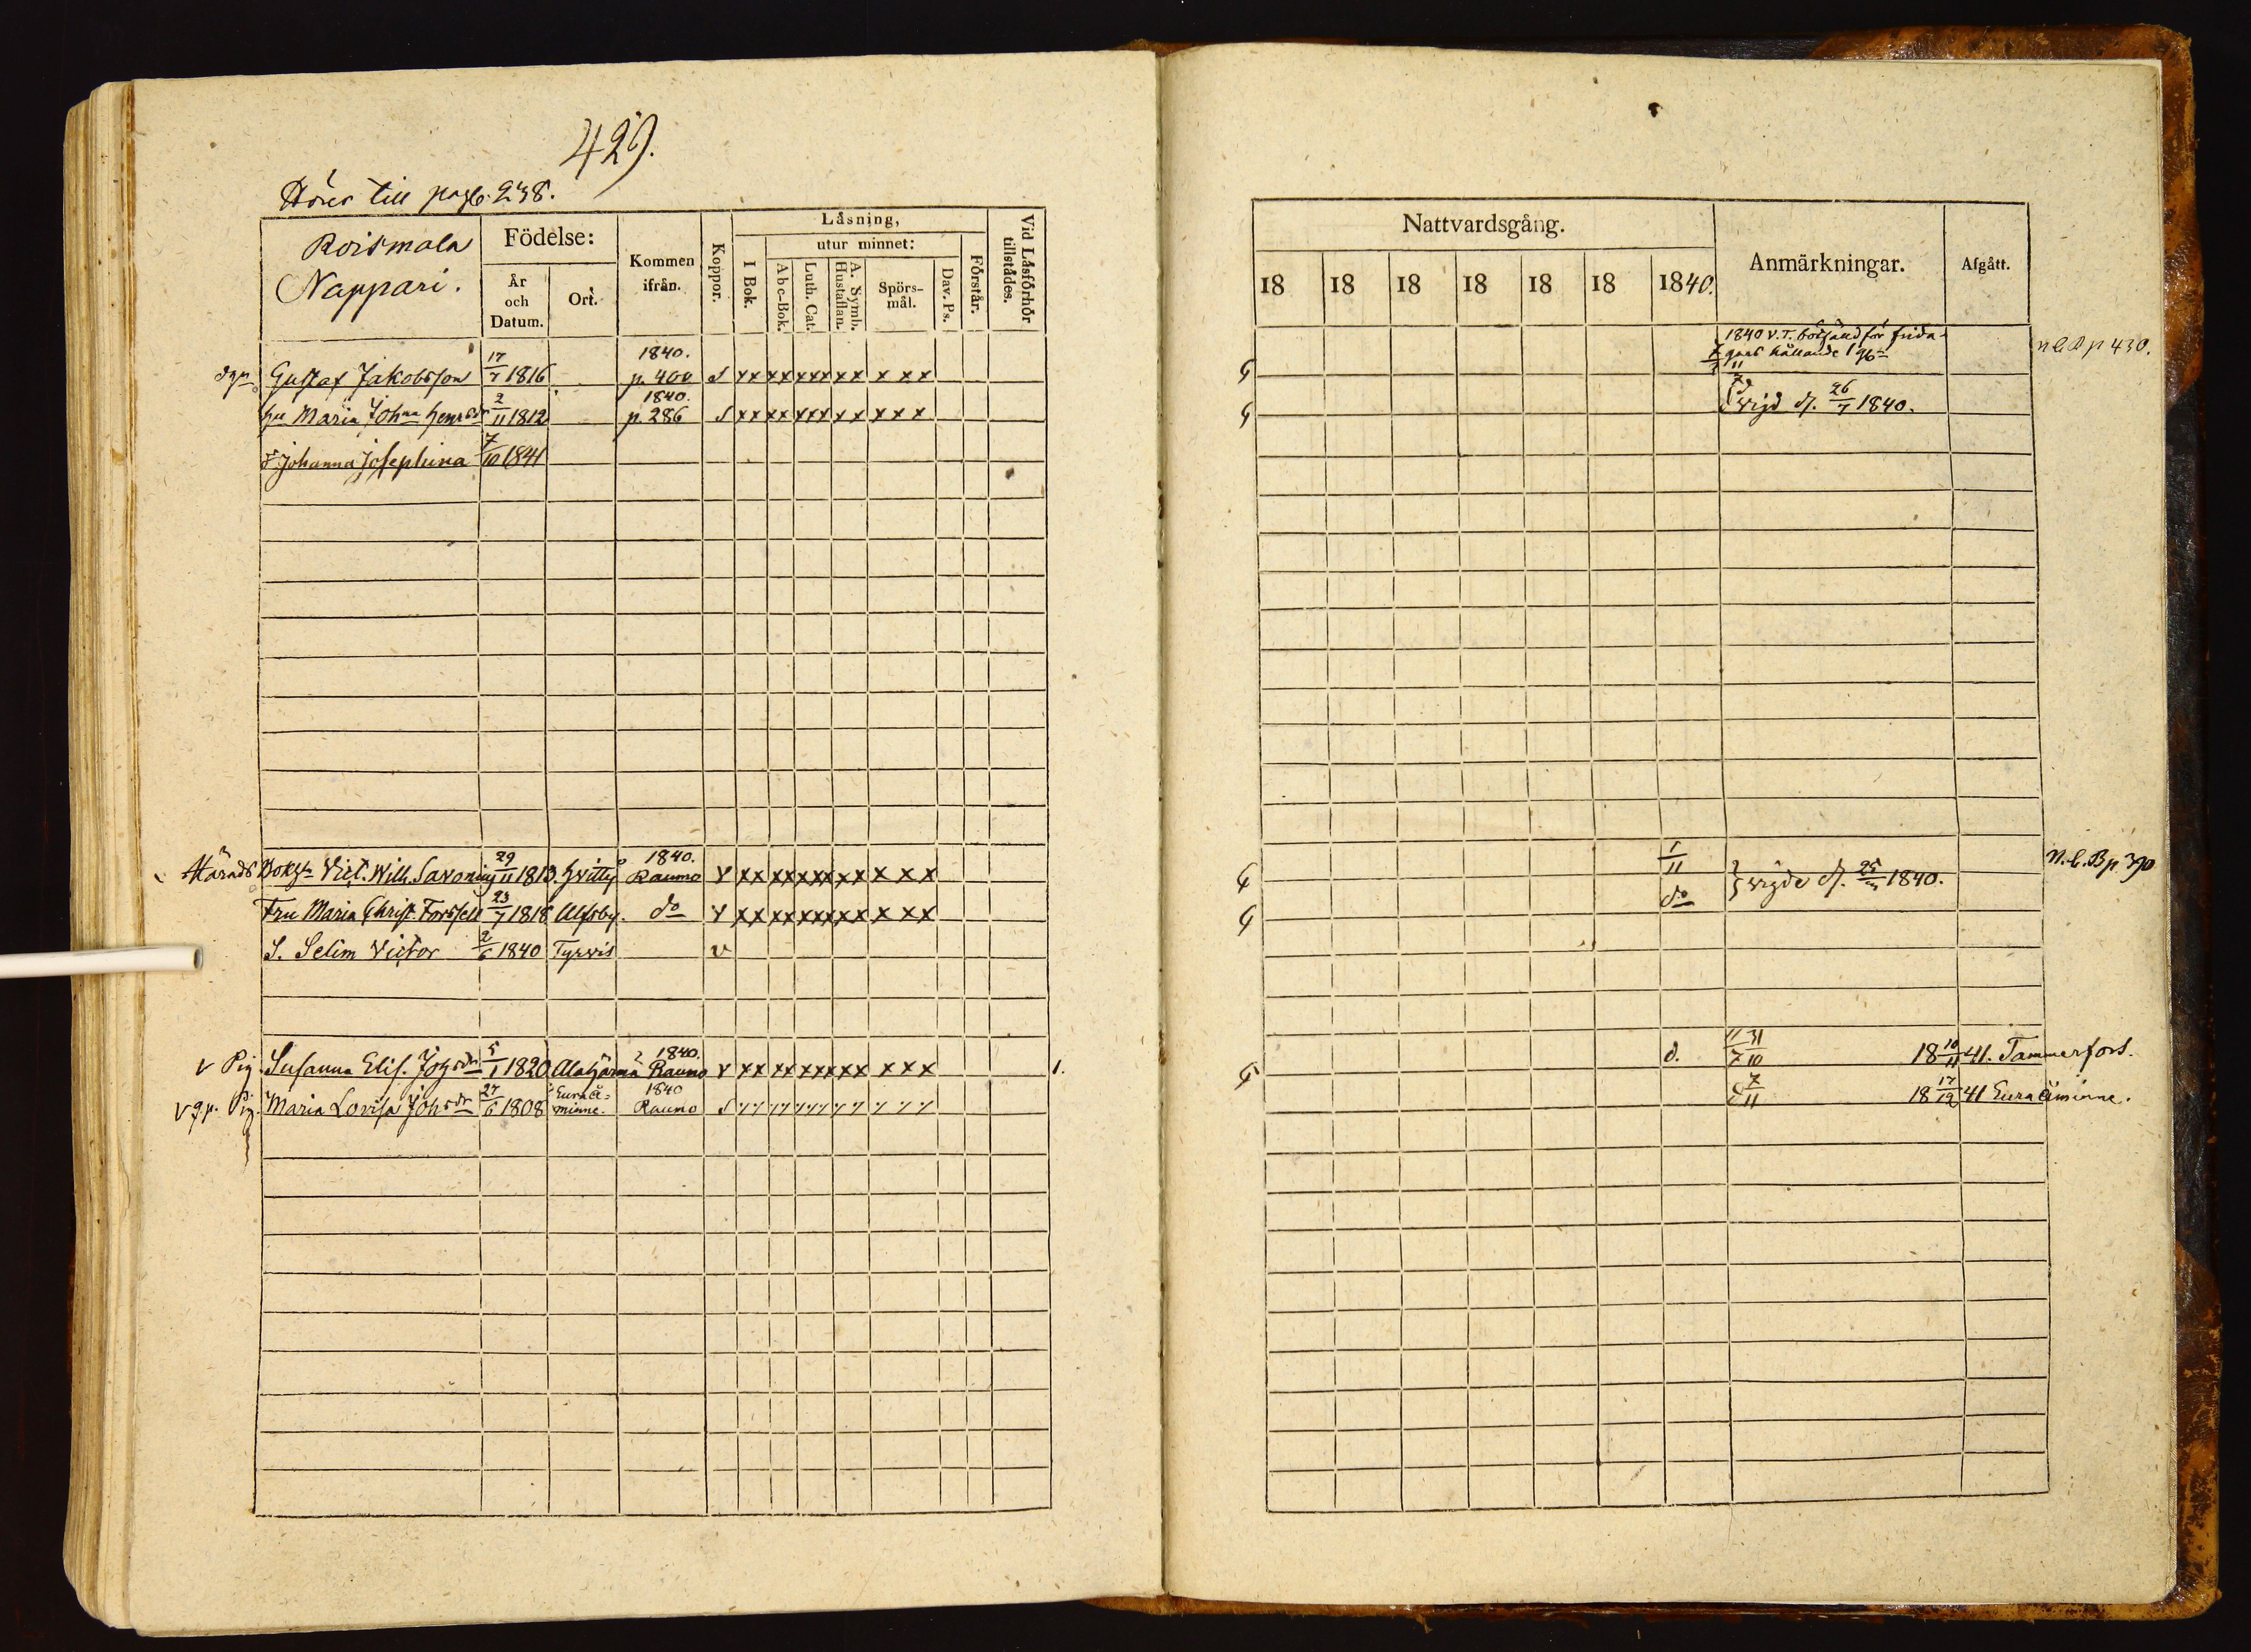 429.
Hörer till pag. 238.
Roismala
Nappari.
Födelse:
År
och
Datum.
Ort.
Kommen
ifrån.
Koppor.
Låsning,
utur minnet:
I Bok.
Abc-Bok.
Luth. Cat.
A. Symb.
Hustaflan.
Spörs-
mål.
Dav. Ps.
Förstår.
Vid Låsförhör
tillstådes.
Gustaf Jakobsson 17/7 1816 1840. p. 400 s xx xx xxx xx x x x
hu Maria Joh:na 2/11 1812 1840. p. 286 s xx xx xxx xx x x x
d. Johanna Josephina 7/10 1841
Härads Bokh. Vict. Wilh. Saxonius 29/11 1813. Hvitty 1840. Raumo v xx xx xxx xx x x x
Fru Maria Christ. Forssell 23/7 1818 Ulfsby. do v xx xx xxx xx x x x
S. Selim Victor 2/6 1840 Tyrvis v
v Pig. Susanna Elis. 5/1 1820 Alahärmä 1840. Raumo v xx xx xxx xx x x x 1.
v gp. Pig. Maria Lovisa Johsdr 27/6 1808 Euraå=minne. 1840 Raumo s
Nattvardsgång.
18 18 18 18 18 18 1840.
Anmärkningar.
Afgått.
1840 V.T. för
hållande
p 430.
vigd d. 26/7 1840.
1/11
do
vigde d. 1840.
N. C. B p 390
d. 11/7 31/10 18 10/11 41. Tammerfors.
7/11 18 17/12 41 Euraåminne.